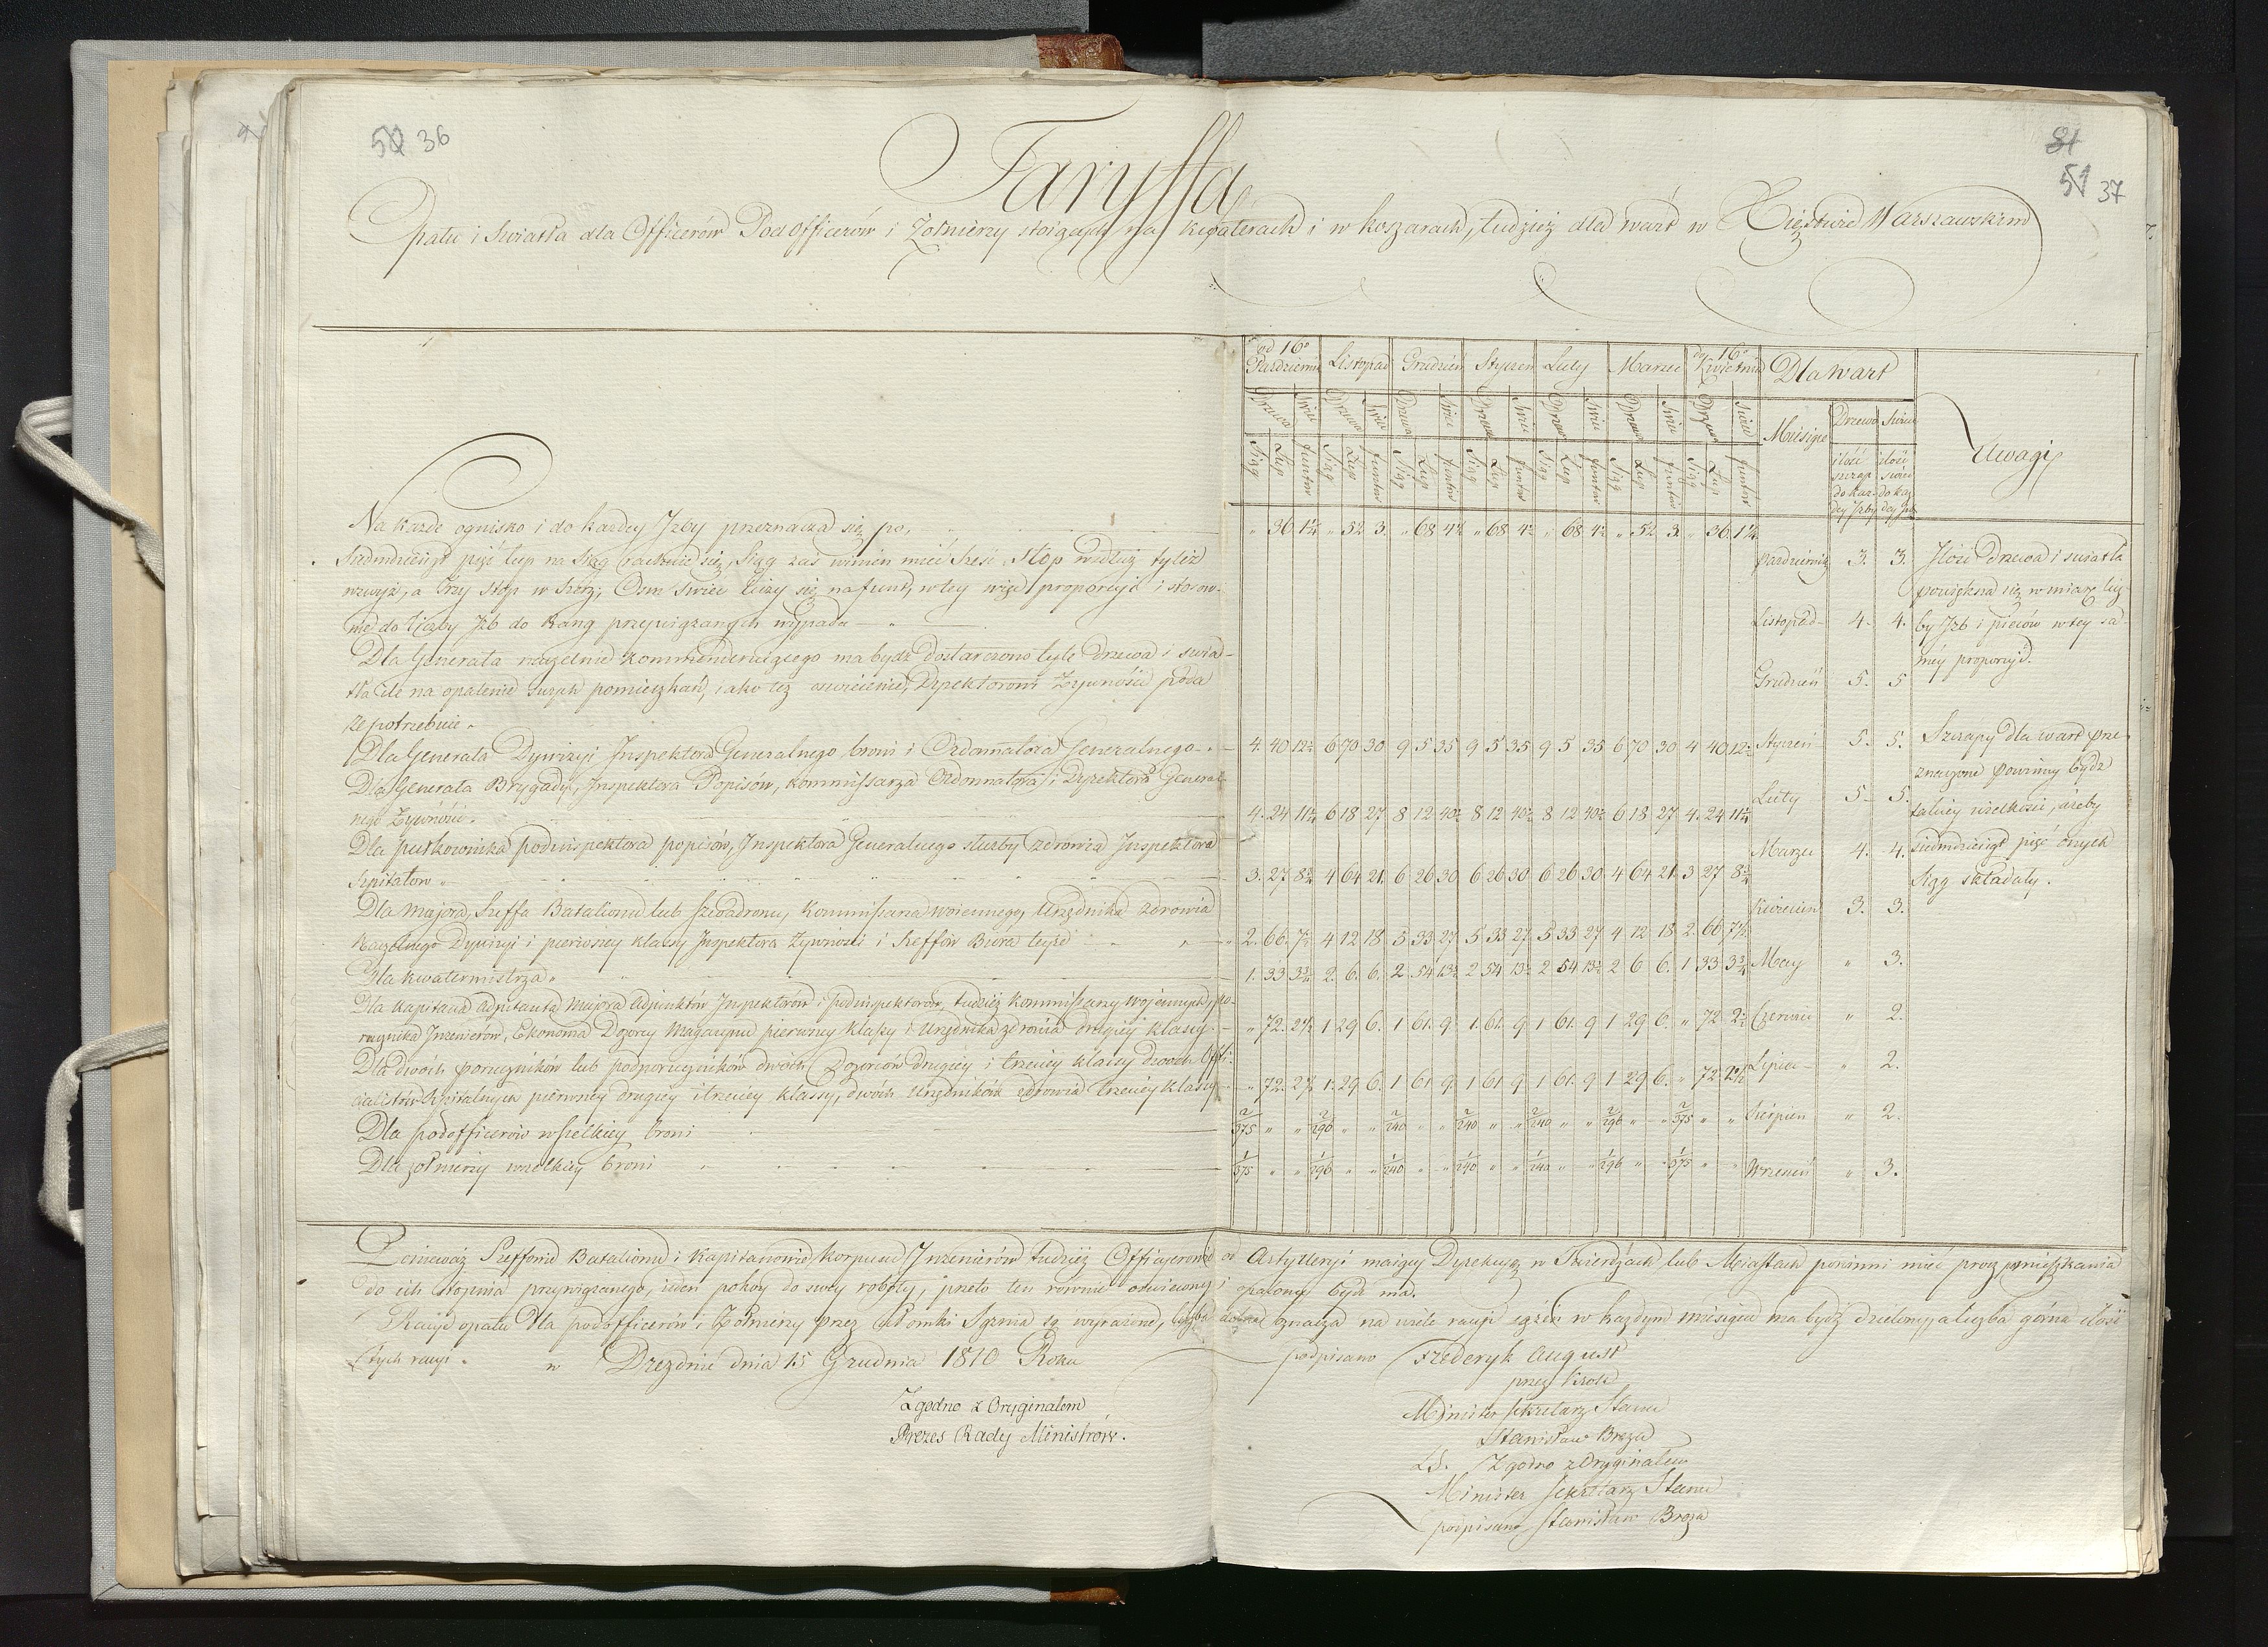 50 36
81
51 37
Taryffa
Opału i Swiatła dla Officerów Pod Officerów i Żołnierzy stoiących na kwaterach i w koszarach, tudzież dla wart w Xięstwie Warszawskim
od 16o Pazdziernik Listopad Grudzień Styczeń Luty Marzec do 16o Kwietnia Dla Wart
Drzewo Swiec Drzewo Swiec Drzewo Swiec Drzewo Swiec Drzewo Swiec Drzewo Swiec Drzewo Swiec Miesiące Drzewo Swiec Uwagi
Sząg Łup funtów Sząg Łup funtów Sząg Łup funtów Sząg Łup funtów Sząg Łup funtów Sząg Łup funtów Sząg Łup funtów
ilość szczap do każdey Izby
ilość swiec do każdey Izby
Na każde ognisko i do każdey Izby przeznacza się po, " 36 1½ " 52 3. " 68 4½ " 68 4½ " 68 4½ " 52 3. " 36 1½
Siedmdziesiąt pięć łup na Sząg rachuie się, Sząg zaś winien mieć sześć stop wzdłuż tyleż
wzwyż, a trzy stop w szerz; Osm swiec liczy się na funt, w tey więc proporcyi i stosow-
nie do liczby Izb do Rang przywiązanych wypada
Dla Generała naczelnie kommenderuiącego ma bydź dostarczono tyle drzewa i swia-
tła ile na opalenie swych pomieszkań, iako też oswiecenie, Dyrektorowi Żywności poda
że potrzebuie.
Dla Generała Dywizyi Inspektora Generalnego broni i Ordonnatora Generalnego 4. 40 12½ 6 70 30 9 5 35 9 5 35 9 5 35 6 70 30 4 40 12½
Dla Generała Brygady, Inspektora Popisów, Kommissarza Ordonnatora i Dyrektora General-
nego Żywności. 4. 24 11¼ 6 18 27 8 12 40½ 8 12 40½ 8 12 40½ 6 18 27 4. 24 11¼
Dla pułkownika podinspektora popisów, Inspektora Generalnego służby zdrowia Inspektora
Szpitalow 3. 27 8¾ 4 64 21. 6 26 30 6 26 30 6 26 30 4 64 21. 3 27 8¾
Dla Majora, Szeffa Batalionu lub Szwadronu, Kommissarza woiennego, Urzędnika zdrowia
Naczelnego Dywizyi i pierwszey klassy Inspektora Żywności i Szeffów Biora teyże 2. 66. 7½ 4 12 18. 5 33 27 5 33 27 5 33 27 4 12 18 2. 66 7½
Dla Kwatermistrza. 1. 33 3¾ 2. 6. 6. 2 54 13½ 2 54 13½ 2 54 13½ 2 6 6. 1 33 3¾
Dla Kapitana Adjutanta Majora Adjunktów Inspektorów i podinspektorów, tudzież Kommissarzy Woiennych, po-
rucznika Inzenierów, Ekonoma Dozorcy Magazynu pierwszey klassy i Urzędnika zdrowia drugiey klassy. " 72. 2½ 1 29 6. 1 61. 9. 1. 61. 9 1 61. 9 1 29 6. " 72 2½
Dla dwóch porucznikow lub podporuczników dwóch Dozorców drugiey i trzeciey klassy dwóch Offi-
cialistów Szpitalnych pierwszey drugiey i trzeciey klassy, dwóch Urzędników zdrowia trzeciey klassy " 72. 2½ 1. 29 6. 1 61 9. 1 61 9 1 61. 9 1 29 6. " 72 2½
Dla podofficerów wszelkiey broni 2/375 " " 2/296 " " 2/240 " " 2/240 " " 2/240 " " 2/296 " " 2/375 " "
Dla żołnierzy wszelkiey broni 1/375 " " 1/296 " " 1/240 " " 1/240 " " 1/240 " " 1/296 " " 1/375 " "
Pazdziernik 3. 3.
Listopad 4. 4.
Grudzień 5. 5
Styczeń 5. 5.
Luty 5. 5.
Marzec 4. 4.
Kwiecień 3. 3.
May " 3.
Czerwiec " 2.
Lipiec " 2.
Sierpien " 2.
Wrzesień " 3.
Ilość Drzewa i swiatła
powiększa się w miarę licz-
by Izb i pieców w tey sa-
méy proporcyi.
Szczapy dla wart prze-
znaczone powinny bydź
takiey wielkości, iżeby
siedmdziesiąt pięć onych
Sząg składały.
Ponieważ Szeffowie Batalionu i Kapitanowie Korpusu Inzenierów tudzież Officerowie od Artylleryi maiący Dyrekcye w Twierdzach lub Miastach powinni mieć procz pomieszkania
do ich stopnia przywiązanego, ieden pokóy do swey roboty, przeto ten rownie oswiecony i opalony bydź ma.
Racye opału dla podofficerów i Żołnierzy przez ułomki Sągnia są wyrażone, liczba dolna oznacza na wiele racyi sążeń w każdym miesiącu ma bydź dzielony, a liczba górna ilość
tych racyi. w Dreznie dnia 15 Grudnia 1810 Roku podpisano Frederyk August
przez Krola
Minister Sekretarz Stanu
Stanisław Breza
Zgodno z Oryginałem
Prezes Rady Ministrów.
LS. Zgodno z Oryginałem
Minister Sekretarz Stanu
podpisano Stanisław Breza